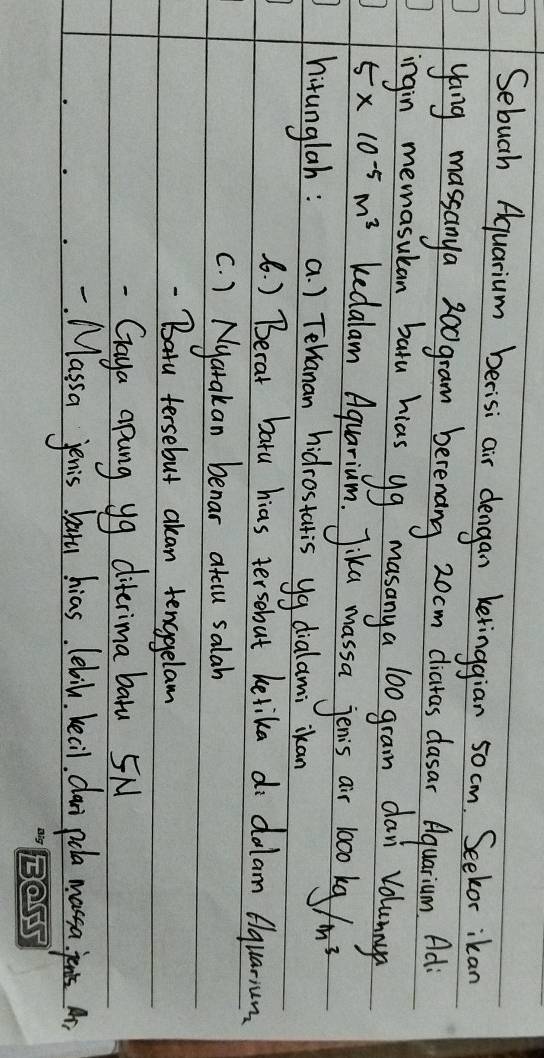 Sebuah Aquarium berisi air dengan ketinggian 50 cm. Seekor ikan
yang massanya 200 gram berenang 20 cm diatas dasar Aquarium. Adi
ingin memasukan batu hias yg masanya 100 gram dan volumnya
5 x 10⁻⁵ m³ kedalam Aquarium. Jika massa jenis air 1000 kg/m³
hitunglah : a.) Tekanan hidrostatis yg dialami ikan
b.) Berat batu hias tersebut ketika di dalam Aquarium
c.) Nyatakan benar atau salah
- Batu tersebut akan tenggelam
- Gaya apung yg diterima batu 5N
- Massa jenis batu hias lebih kecil dari pda massa jenis Air
Big BOSS